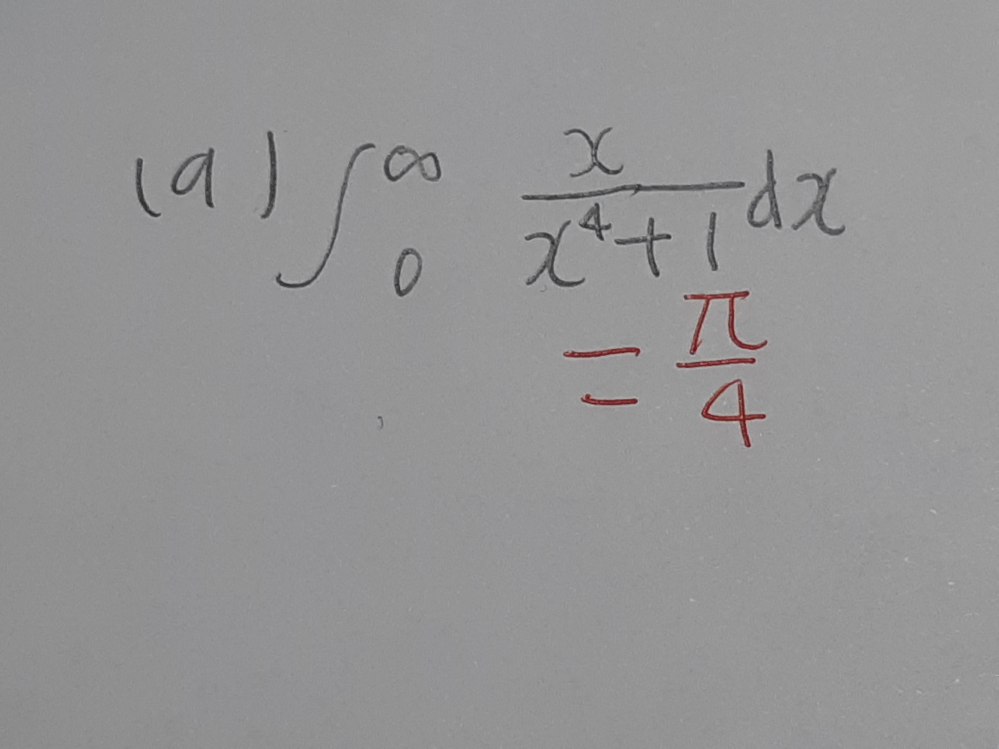 (a) ∫₀^∞ x/(x⁴+1) dx
= π/4